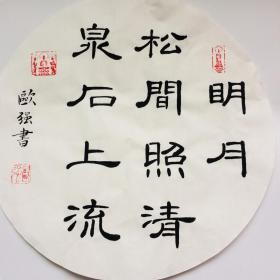 明月
松間照清
泉石上流
歐强書